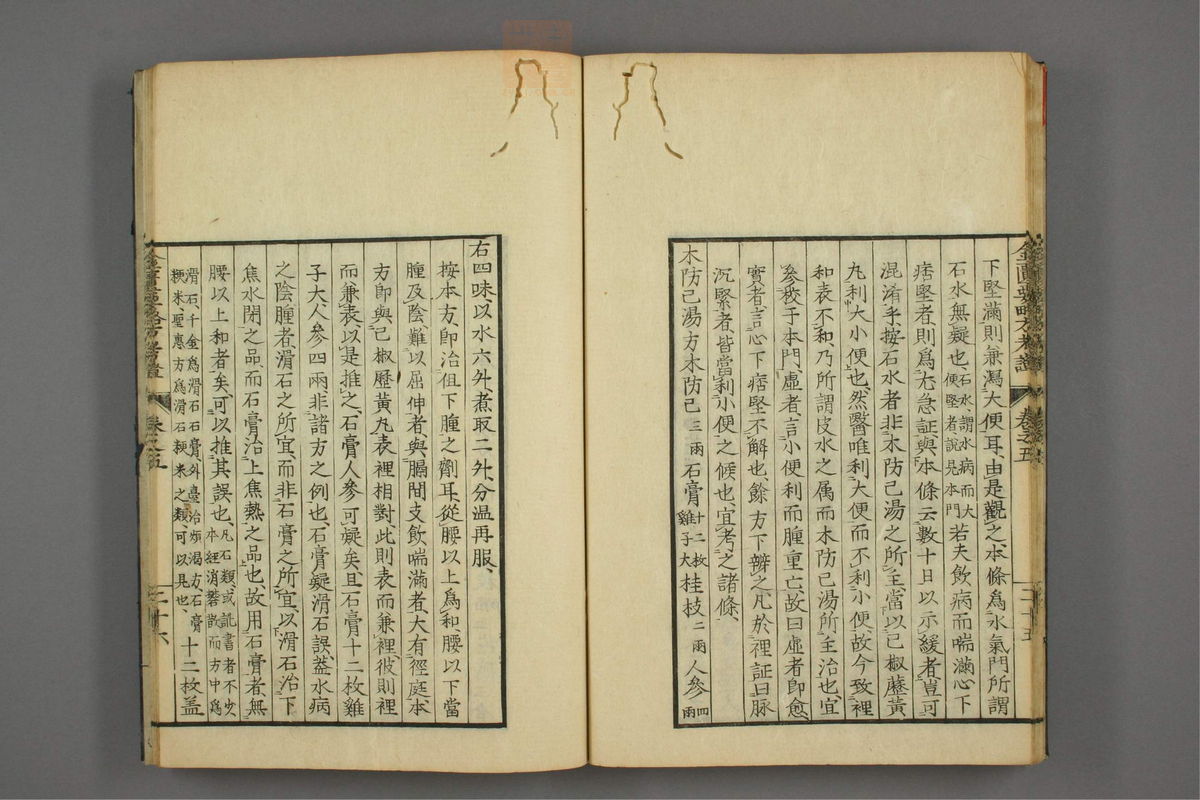 下堅滿則兼瀉大便耳由是觀之本條為水氣門所謂
石水無疑也石水謂水病而大便堅者說見本門若夫飲病而喘滿心下
痞堅者則為尤急証與本條云數十日以示緩者豈可
混淆乎按石水者非木防己湯之所主當以己椒藶黃
丸利大小便也然醫唯利大便而不利小便故今致裡
和表不和乃所謂皮水之属而木防己湯所主治也宜
參攷于本門虛者言小便利而腫重亡故曰虛者即愈
實者言心下痞堅不解也餘方下辨之凡於裡証曰脉
沉緊者皆當利小便之候也宜考之諸條
木防己湯方木防己三兩石膏十二枚雞子大桂枝二兩人參四兩
金匱要略方考證 卷之五 二十五
右四味以水六升煮取二升分温再服
按本方即治但下腫之劑耳從腰以上為和腰以下當
腫及陰難以屈伸者與膈間支飲喘滿者大有徑庭本
方即與己椒藶黃丸表裡相對此則表而兼裡彼則裡
而兼表以是推之石膏人參可疑矣且石膏十二枚雞
子大人參四兩非諸方之例也石膏疑滑石誤蓋水病
之陰腫者滑石之所宜而非石膏之所宜以滑石治下
焦水閉之品而石膏治上焦熱之品也故用石膏者無
腰以上和者矣可以推其誤也凡石類或訛書者不少本經消礬散而方中為
滑石千金為滑石石膏外臺治煩渴方石膏粳米聖惠方為滑石粳米之類可以見也十二枚盖
金匱要略方考證 卷之五 二十六